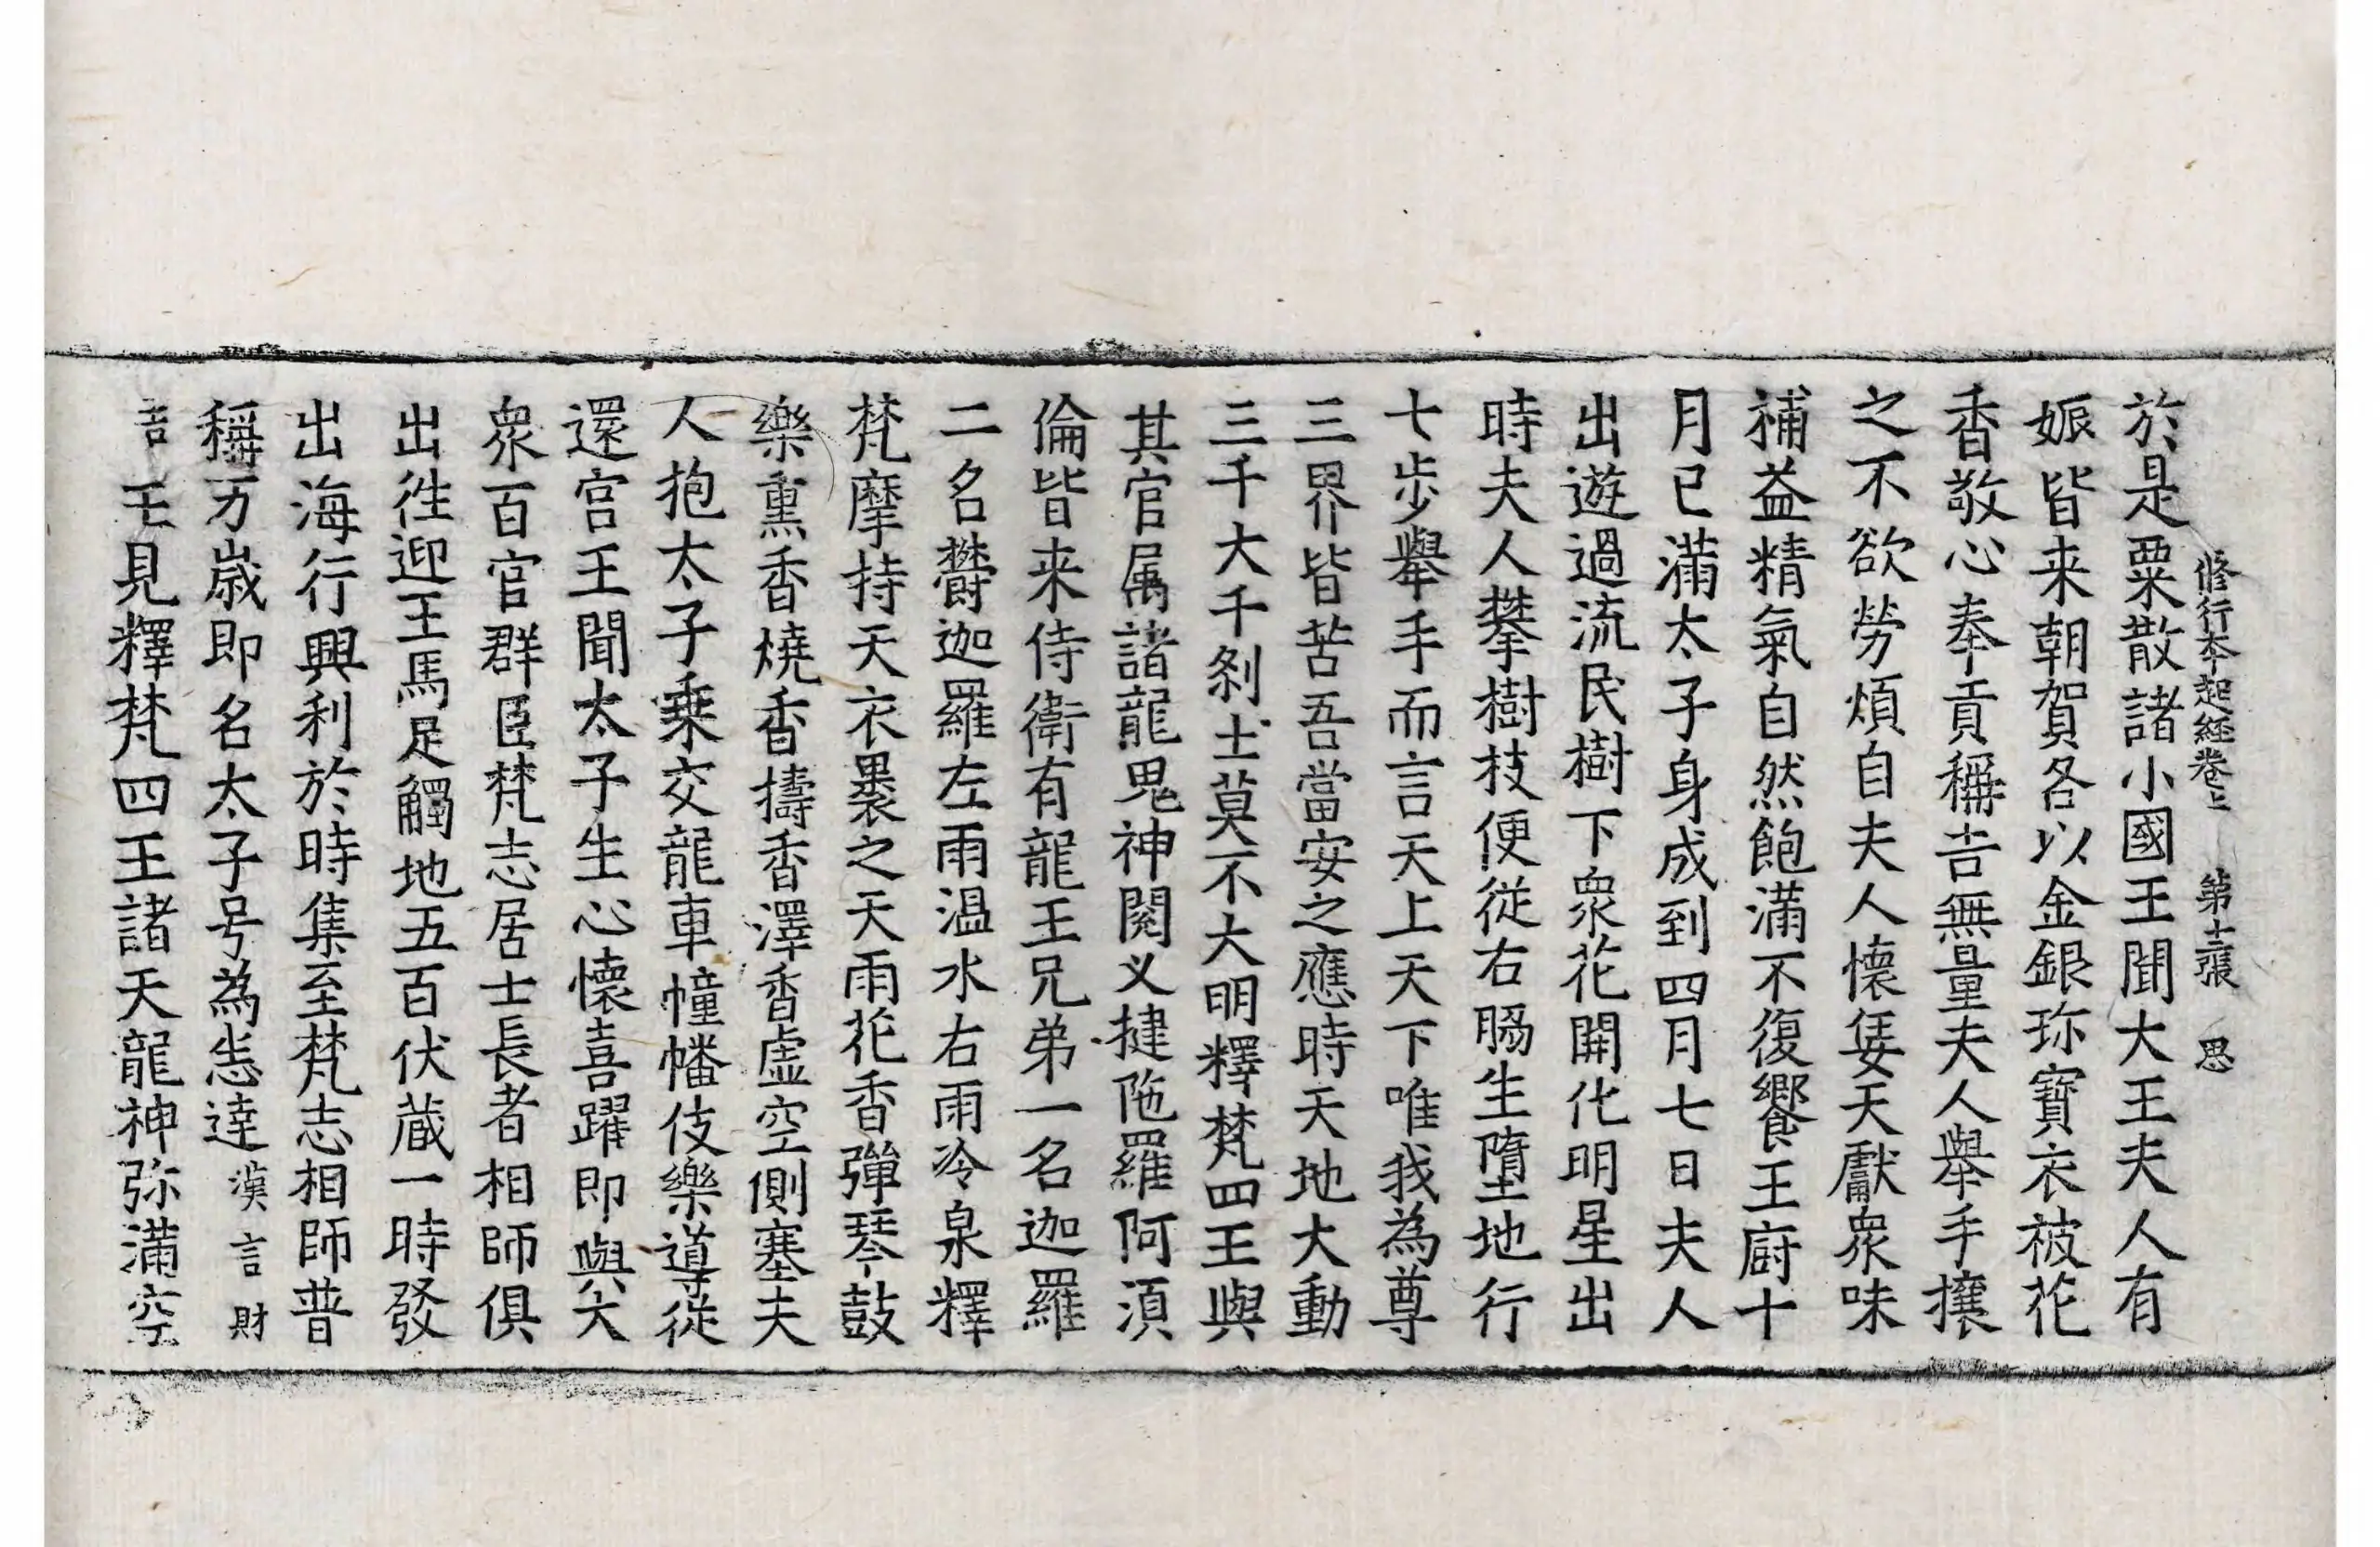 修行本起經卷上 第十二張 思
於是粟散諸小國王聞大王夫人有
娠皆来朝賀各以金銀珎寶衣被花
香敬心奉貢稱吉無量夫人舉手攘
之不欲勞煩自夫人懷㚷天獻衆味
補益精氣自然飽滿不復饗王廚十
月已滿太子身成到四月七日夫人
出遊過流民樹下衆花開化明星出
時夫人攀樹枝便從右脇生墮地行
七步舉手而言天上天下唯我為尊
三界皆苦吾當安之應時天地大動
三千大千刹土莫不大明釋梵四王與
其官属諸龍鬼神閱叉揵陁羅阿湏
倫皆来侍衛有龍王兄弟一名迦羅
二名欝迦羅左雨温水右雨冷泉釋
梵摩持天衣褁之天雨花香彈琴鼓
樂熏香燒香擣香澤香虛空側塞夫
人抱太子乗交龍車幢幡伎樂導從
還宫王聞太子生心懷喜躍即與大
衆百官群臣梵志居士長者相師俱
出徃迎王馬足觸地五百伏藏一時發
出海行興利於時集至梵志相師普
稱万歲即名太子号為悉達 漢言財
吉 王見釋梵四王諸天龍神弥滿空